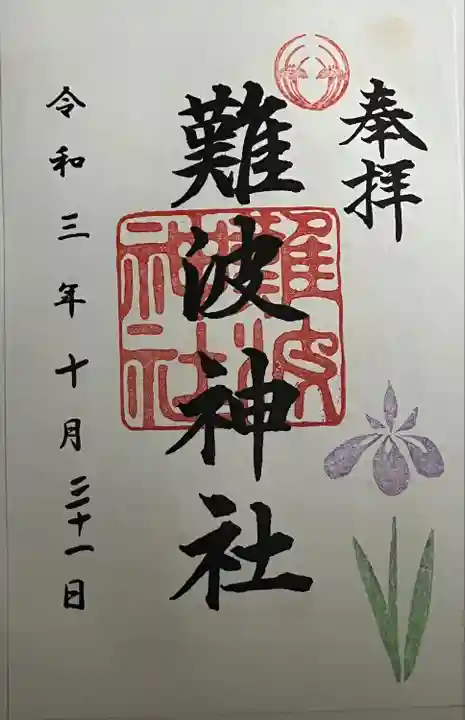 奉拝
難波神社
難波
神社
令和三年十月三十一日